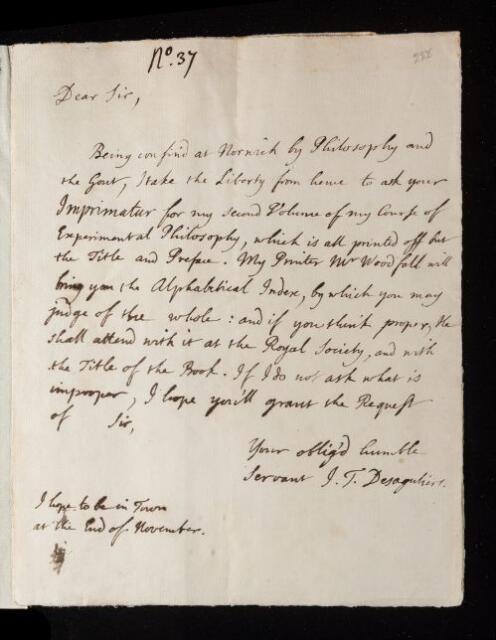 No. 37
Dear Sir,
Being confin'd at Norwich by Philosophy and
the Gout, I take the Liberty from hence to ask your
Imprimatur for my second Volume of my Course of
Experimental Philosophy, which is all printed off but
the Title and Preface. My Printer Mr Woodfall will
bring you the Alphabetical Index, by which you may
judge of the whole: and if you think proper, He
shall attend with it at the Royal Society, and with
the Title of the Book. If I do not ask what is
improper, I hope you'll grant the Request
of Sir,
Your oblig'd humble
Servant J. T. Desaguliers.
I hope to be in Town
at the End of November.